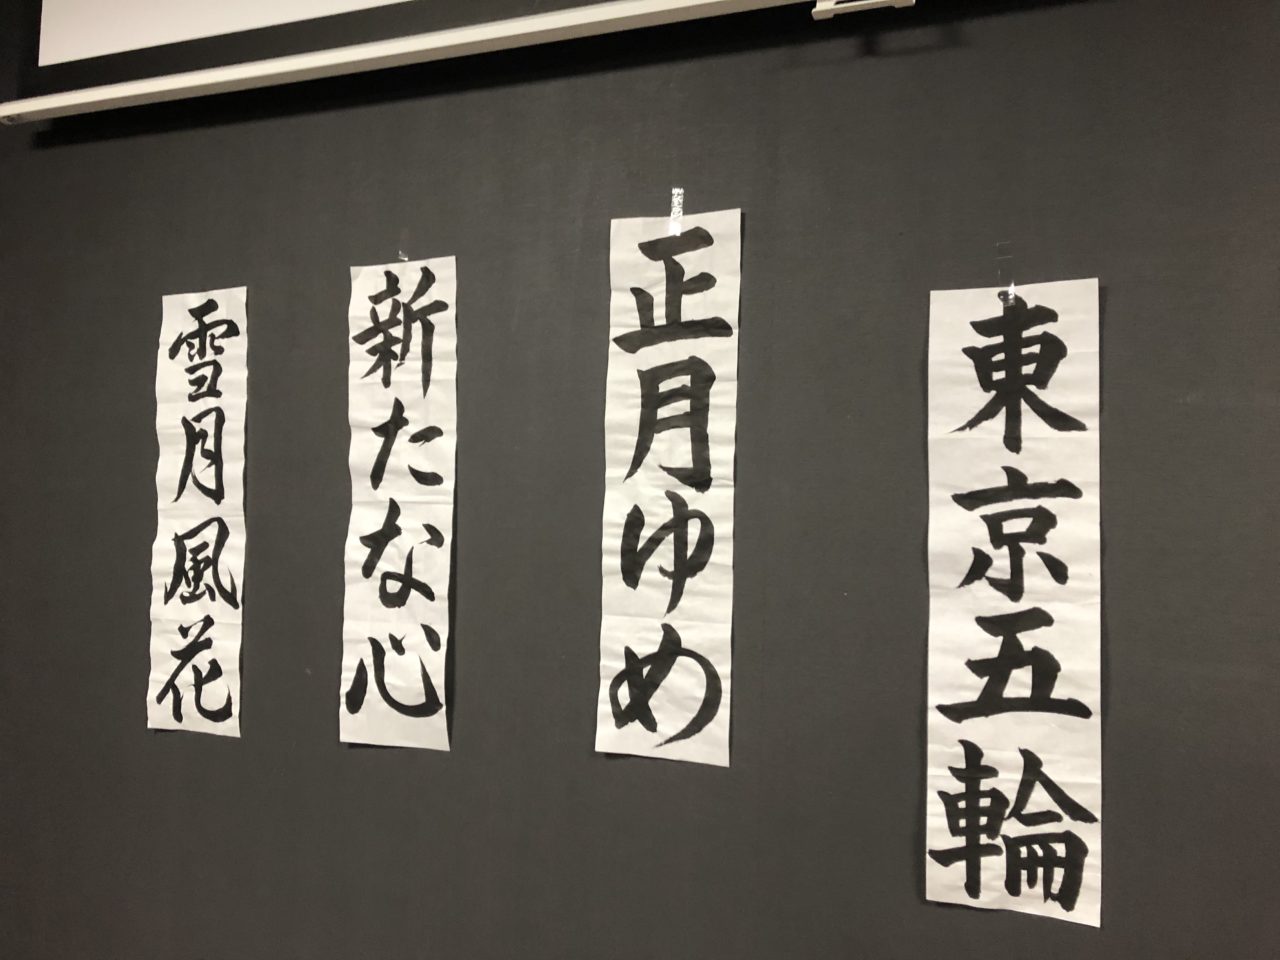 東京五輪
正月ゆめ
新たな心
雪月風花